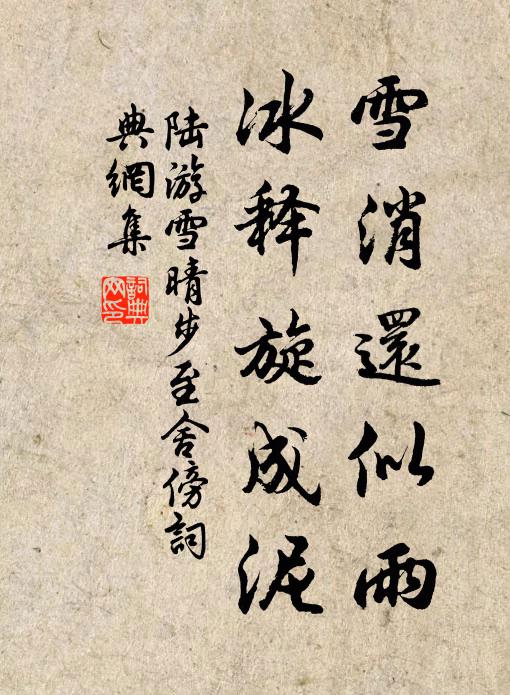 雪消還似雨
冰释旋成泥
陆游雪晴步至舍傍詞
典網集
詞典
网印